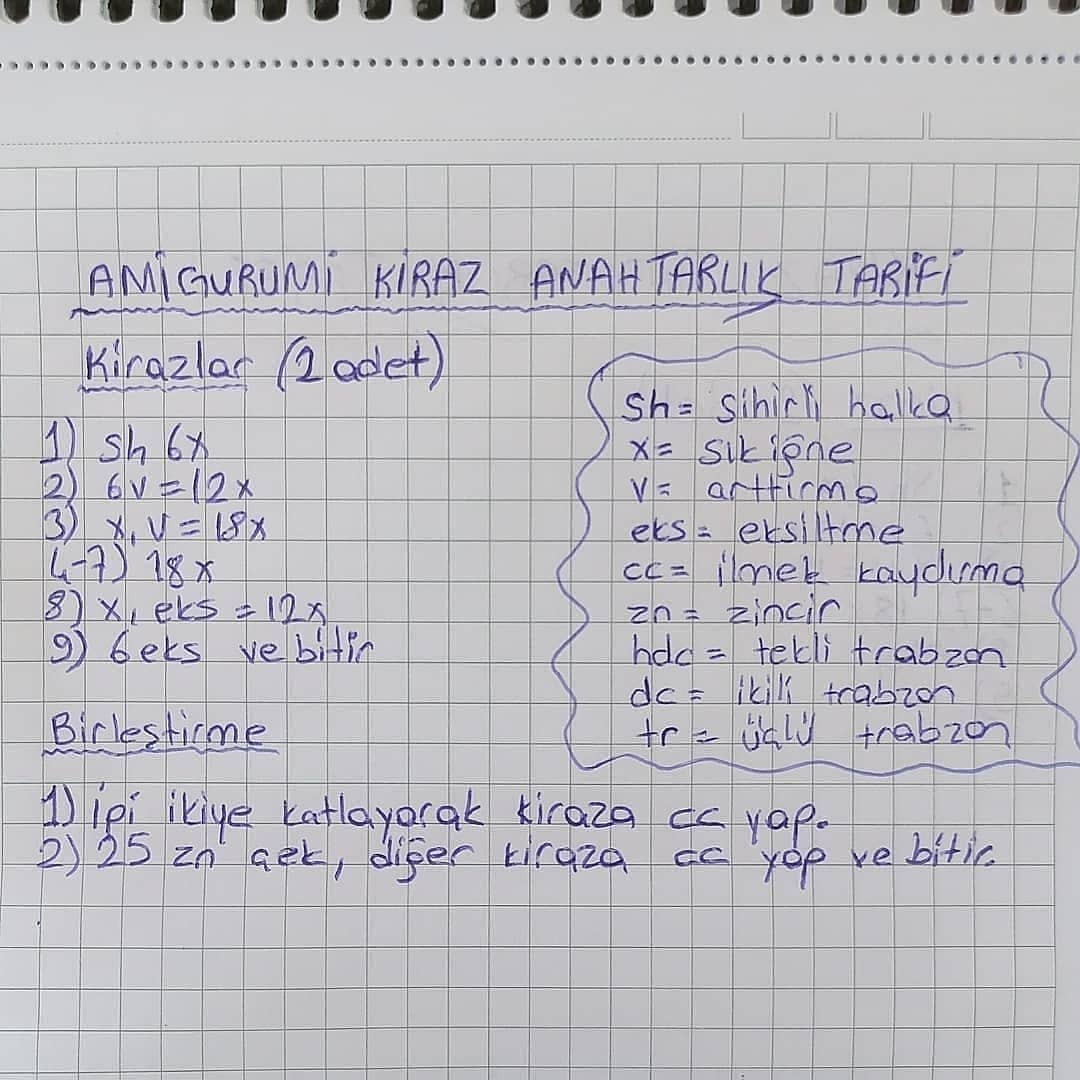 AMİGURUMİ KİRAZ ANAHTARLIK TARİFİ
Kirazlar (2 adet)
1) sh 6x
2) 6v = 12x
3) x, v = 18x
4-7) 18x
8) x, eks = 12x
9) 6 eks ve bitir
sh = sihirli halka
x = sık iğne
v = arttırma
eks = eksiltme
cc = ilmek kaydırma
zn = zincir
hdc = tekli trabzon
dc = ikili trabzon
tr = üçlü trabzon
Birleştirme
1) ipi ikiye katlayarak kiraza cc yap.
2) 25 zn çek, diğer kiraza cc yap ve bitir.